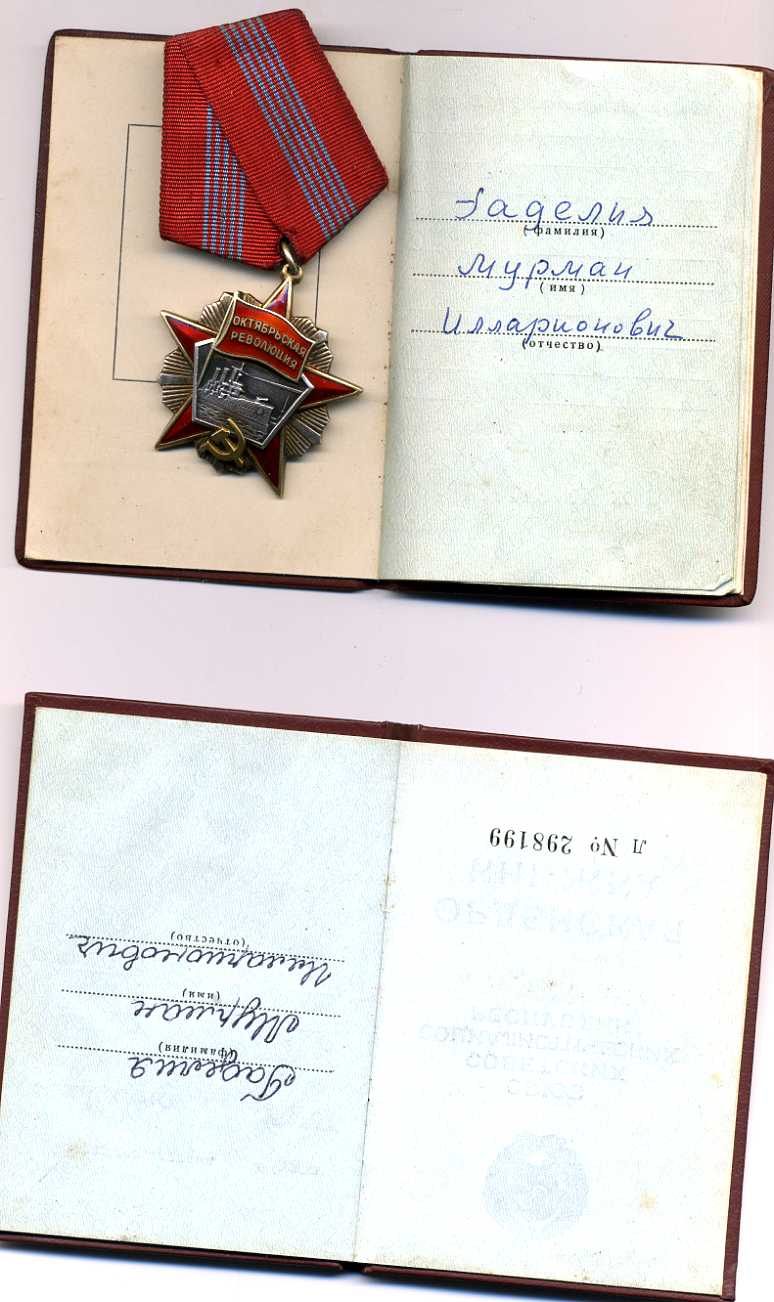 ОКТЯБРЬСКАЯ
РЕВОЛЮЦИЯ
Гаделия
(фамилия)
Мурман
(имя)
Илларионович
(отчество)
Л № 298199
Гаделия
(фамилия)
Мурман
(имя)
Илларионович
(отчество)